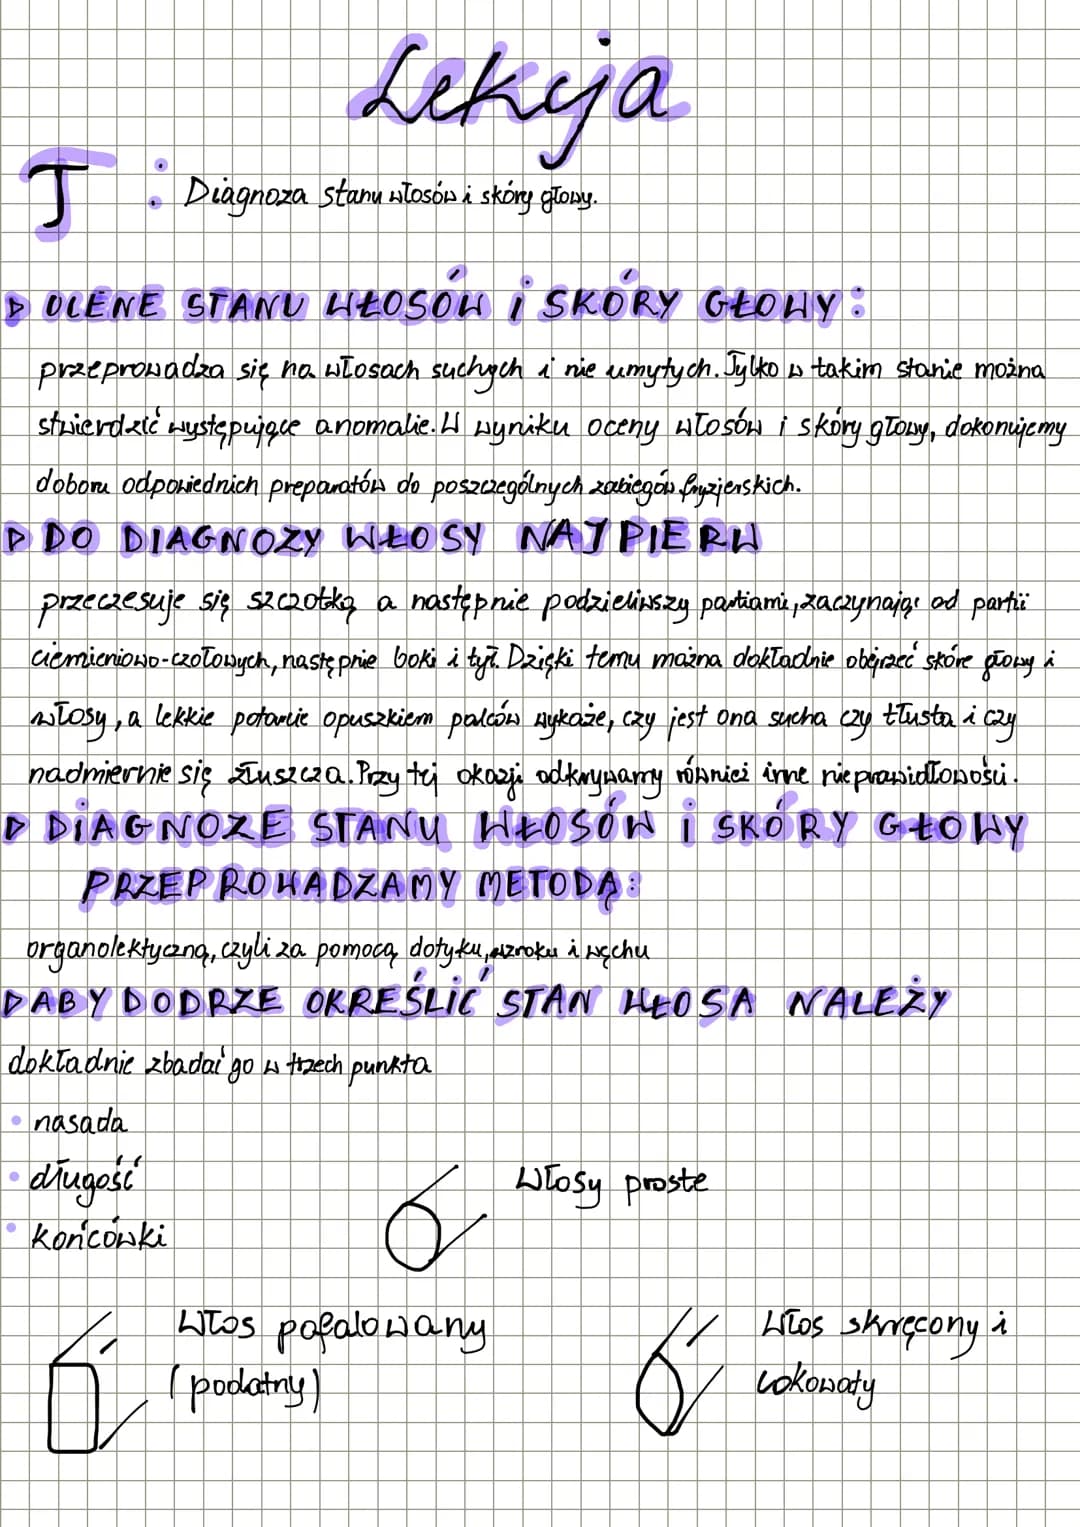 Lekcja
T: Diagnoza stanu włosów i skóry głowy.
▷ OCENE STANU WŁOSÓW i SKÓRY GŁOWY:
przeprowadza się na włosach suchych i nie umytych. Tylko w takim stanie można
stwierdzić występujące anomalie. W wyniku oceny włosów i skóry głowy, dokonujemy
doboru odpowiednich preparatów do poszczególnych zabiegów fryzjerskich.
▷ DO DIAGNOZY WŁOSY NAJPIERW
przeczesuje się szczotką a następnie podzieliwszy partiami, zaczynając od partii
ciemieniowo-czołowych, następnie boki i tył. Dzięki temu można dokładnie obejrzeć skóre głowy i
włosy, a lekkie potarcie opuszkiem palców wykaże, czy jest ona sucha czy tłusta i czy
nadmiernie się złuszcza. Przy tej okazji odkrywamy również inne nieprawidłowości.
▷ DiAGNOZE STANU WŁOSÓW i SKÓRY GŁOWY
PRZEPROWADZAMY METODĄ:
organolektyczną, czyli za pomocą dotyku, wzroku i węchu
▷ ABY DODRZE OKREŚLIĆ STAN WŁOSA NALEŻY
dokładnie zbadać go w trzech punkta
• nasada
• długość
• końcówki
Włosy proste
Włos pofalowany
(podatny)
Włos skręcony i
Lokowaty